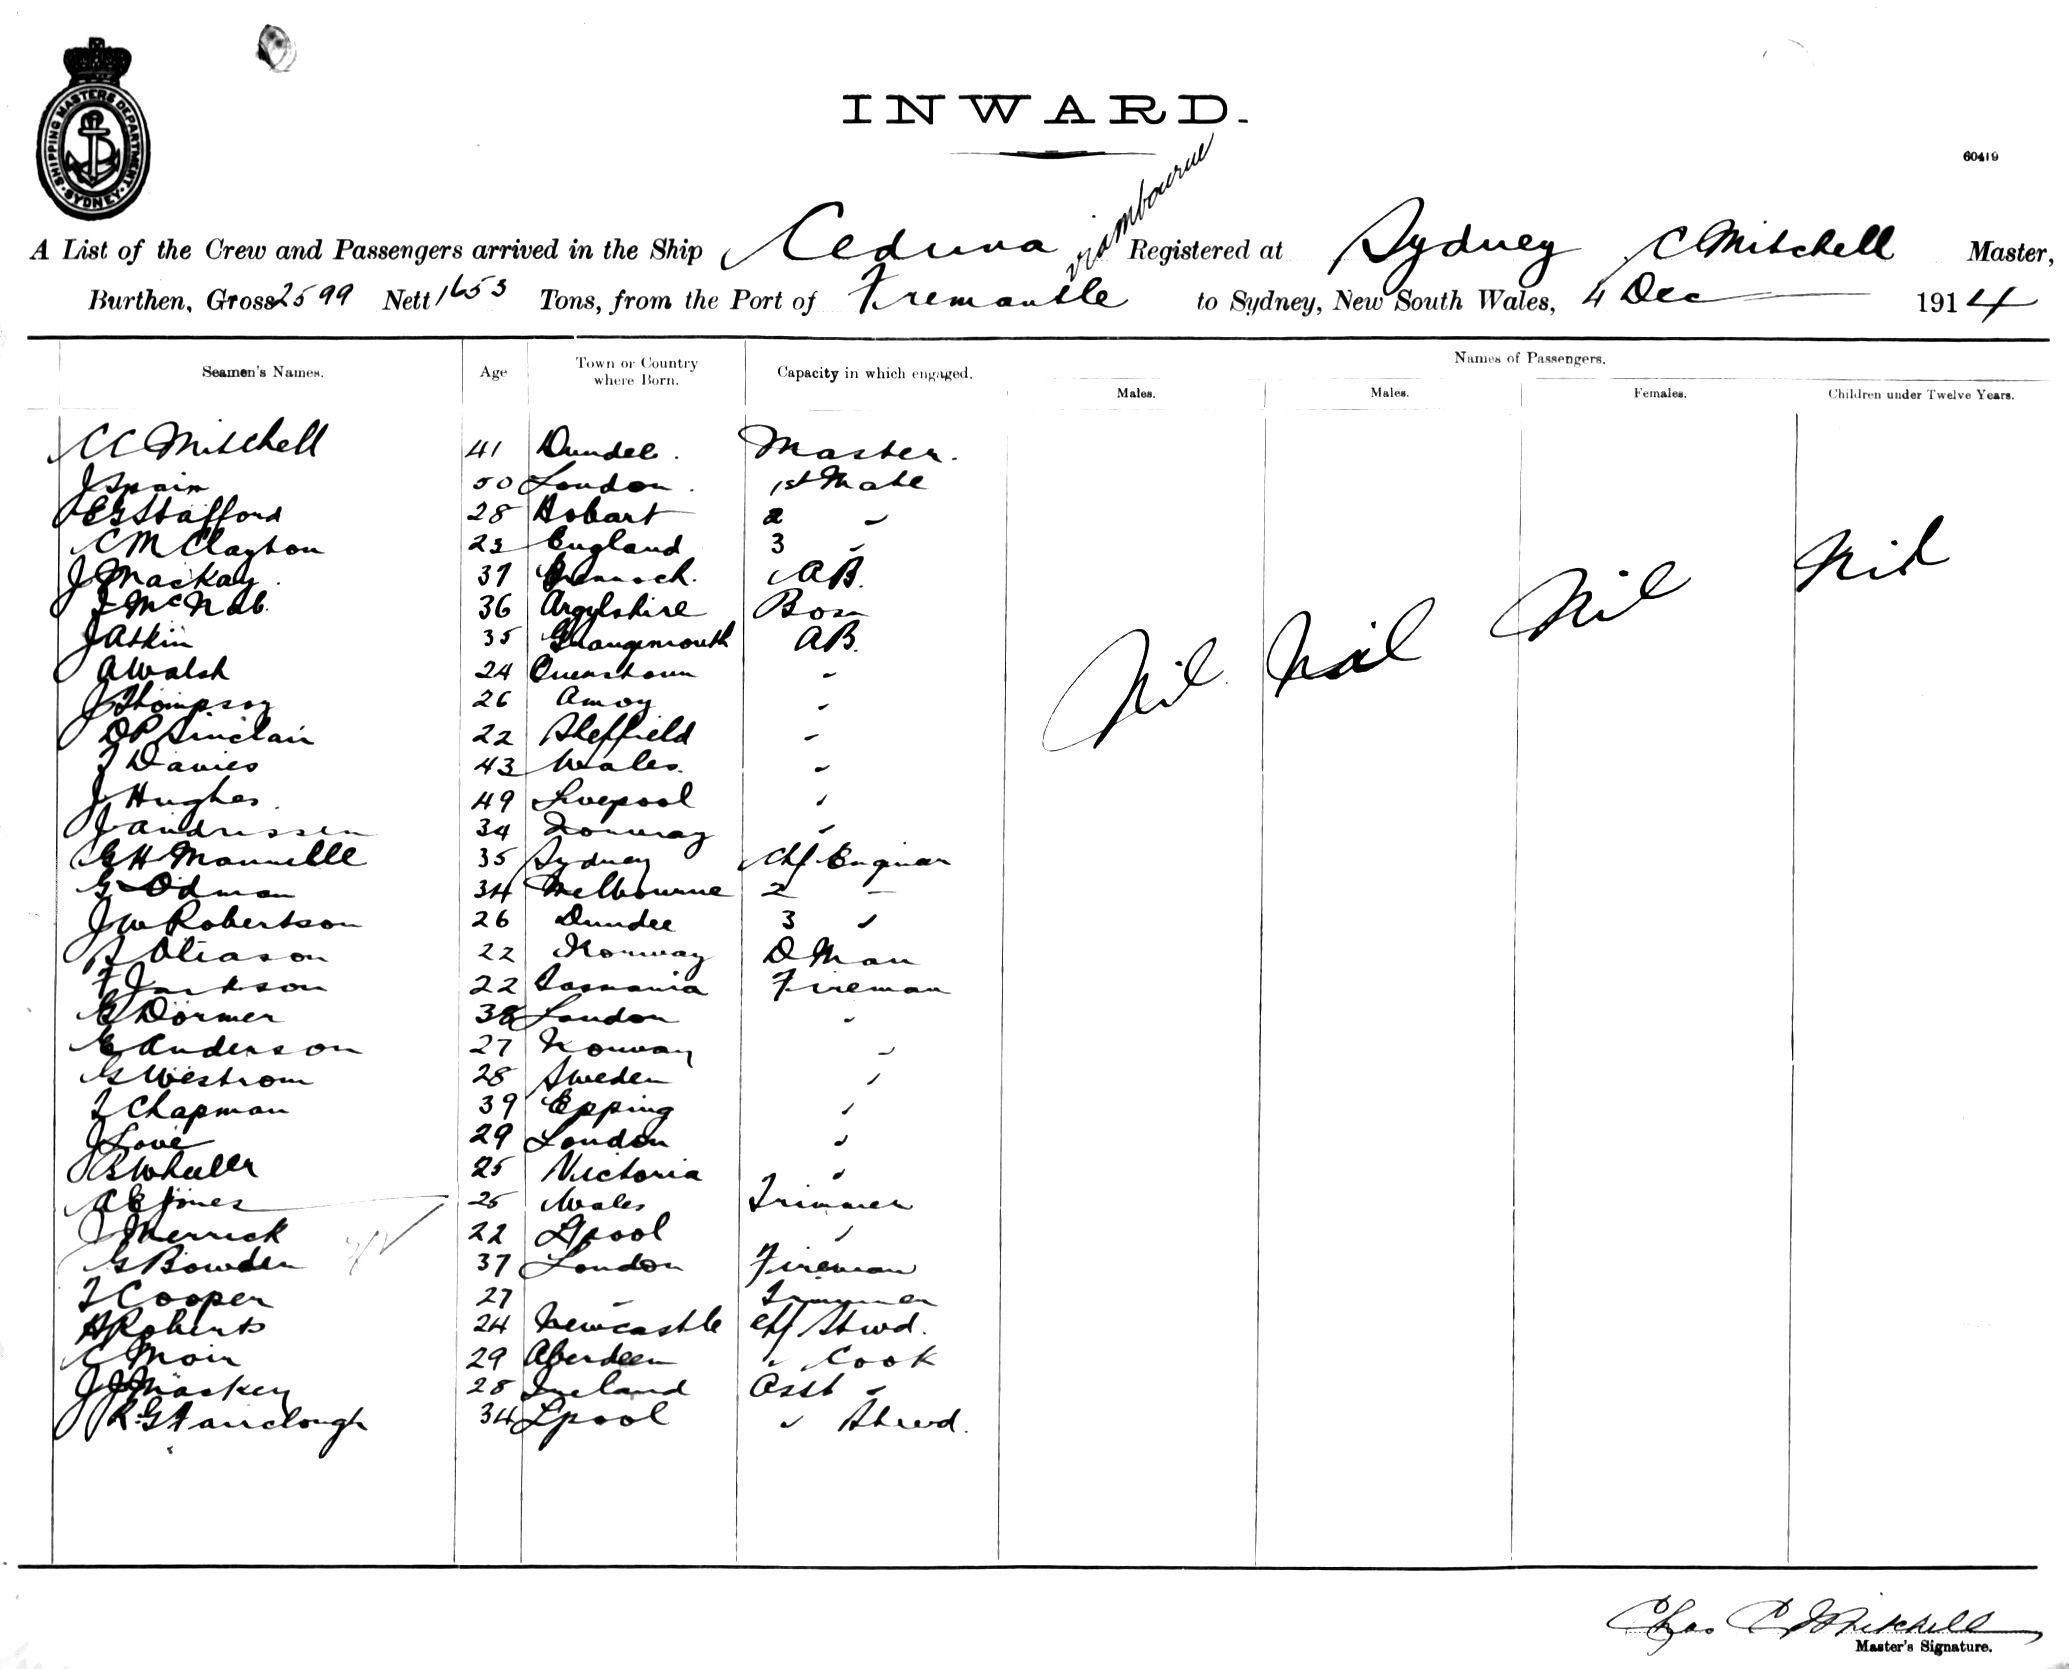 SHIPPING MASTERS DEPARTMENT
SYDNEY
INWARD.
60419
A List of the Crew and Passengers arrived in the Ship Ceduna Registered at Sydney C Mitchell Master,
Burthen, Gross 2599 Nett 1653 Tons, from the Port of Fremantle to Sydney, New South Wales, 4 Dec 1914
Seamen's Names. Age Town or Country where Born. Capacity in which engaged. Names of Passengers.
Males. Males. Females. Children under Twelve Years.
C C Mitchell 41 Dundee. Master.
J Spain 50 London. 1st Mate
E G Stafford 28 Hobart 2 "
C M Clayton 23 England 3 "
J Mackay. 37 Greenock. AB.
McNab. 36 Argylshire Bosn
J Atkin 35 Grangemouth AB.
A Walsh 24 Queenstown "
J Thompson 26 Amoy "
D P Sinclair 22 Sheffield "
T Davies 43 Wales. "
J Hughes. 49 Livepool "
J Andrissen 34 Norway "
G H Manuelle 35 Sydney Chf Enginer
G Odman 34 Melbourne 2 "
J W Robertson 26 Dundee 3 "
Oliason 22 Norway D Man
F Jackson 22 Tasmania Fireman
G Dormer 38 London "
E Anderson 27 Norway "
G Westrom 28 Sweden "
T Chapman 39 Epping "
J Love 29 London "
B Wheeler 25 Victoria "
A E Jones 25 Wales Trimmer
J Merrick 22 Lpool "
G Bowden 37 London Fireman
T Cooper 27 " Trimmer
H Roberts 24 Newcastle Chf Stwd.
C Moir 29 Aberdeen " Cook
J J Mackey 28 Ireland Asst "
R G Fairclough 34 Lpool " Stwd.
Nil. Nil Nil Nil
Chas C Mitchell
Master's Signature.